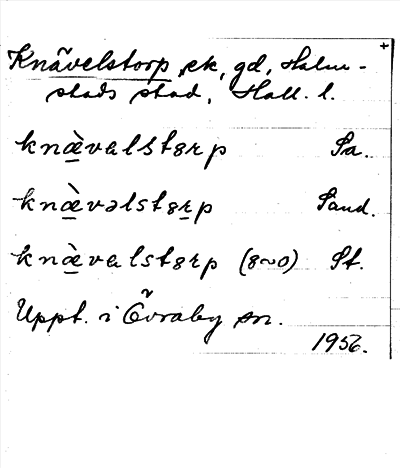 Knävelstorp, ek, gd, Halm-
stads stad, Hall. l.
knæ̀valstɜrp Sa.
knæ̀vəlstɜrp Sand.
knæ̀valstɜrp (ɜ~o) St.
Uppt. i Övraby sn.
1956.